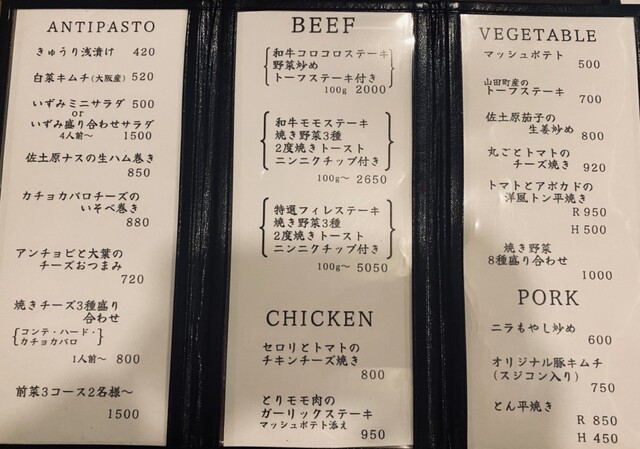 ANTIPASTO
きゅうり浅漬け 420
白菜キムチ(大阪産) 520
いずみミニサラダ 500
or
いずみ盛り合わせサラダ
4人前〜 1500
佐土原ナスの生ハム巻き
850
カチョカバロチーズの
いそべ巻き
880
アンチョビと大葉の
チーズおつまみ
720
焼きチーズ3種盛り
合わせ
コンテ・ハード・
カチョカバロ
1人前〜 800
前菜3コース2名様〜
1500
BEEF
和牛コロコロステーキ
野菜炒め
トーフステーキ付き
100g 2000
和牛モモステーキ
焼き野菜3種
2度焼きトースト
ニンニクチップ付き
100g〜 2650
特選フィレステーキ
焼き野菜3種
2度焼きトースト
ニンニクチップ付き
100g〜 5050
CHICKEN
セロリとトマトの
チキンチーズ焼き
800
とりモモ肉の
ガーリックステーキ
マッシュポテト添え
950
VEGETABLE
マッシュポテト
500
山田町産の
トーフステーキ
700
佐土原茄子の
生姜炒め
800
丸ごとトマトの
チーズ焼き 920
トマトとアボカドの
洋風トン平焼き
R 950
H 500
焼き野菜
8種盛り合わせ
1000
PORK
ニラもやし炒め
600
オリジナル豚キムチ
(スジコン入り)
750
とん平焼き
R 850
H 450